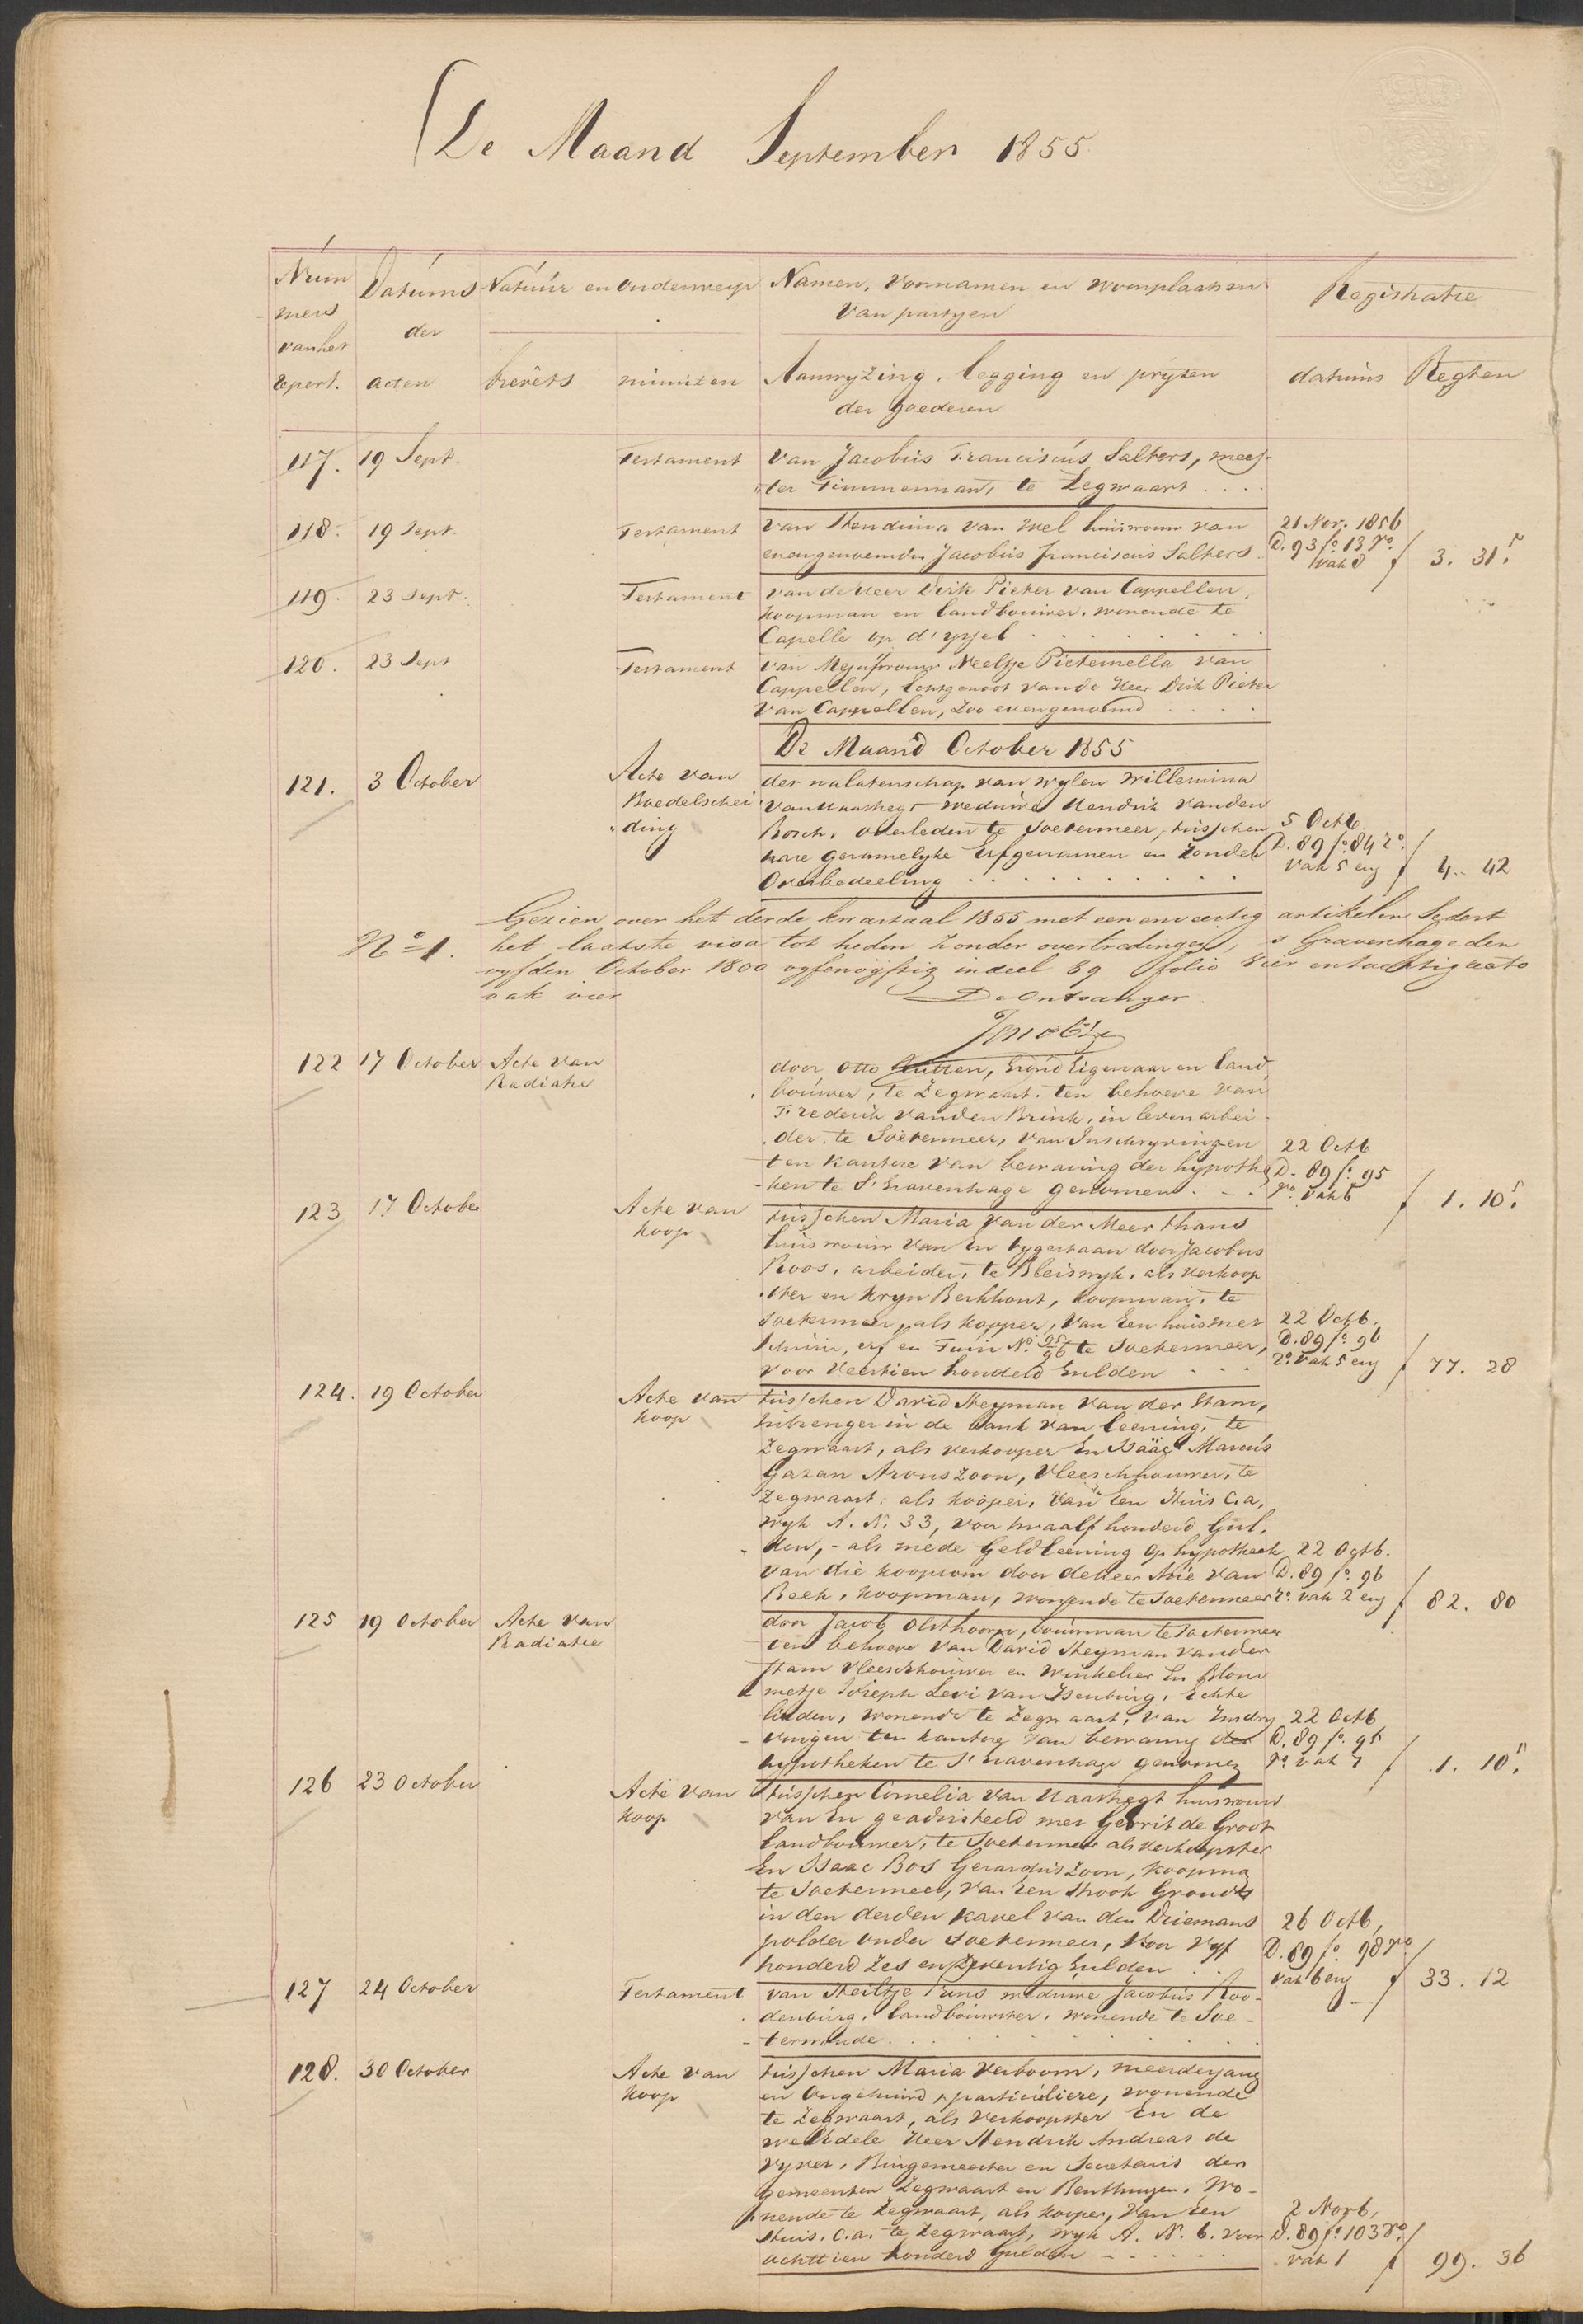 De Maand September 1855
Num
mers
van het
repert.
Datums
der
acten
Natuur en onderwerp
brevets
minuten
Namen, Voornamen en Woonplaatsen
van partyen
Aanwyzing, legging en pryzen
der goederen
Registratie
datums
Regten
117. 19 Sept. Testament van Jacobus Franciscus Salters, mees-
ter Timmerman, te Zegwaart
118. 19 Sept. Testament van Hendrina van Wel huisvrouw van 21 Nov. 1856
evengenoemden Jacobus franciscus Salters D. 93 fo. 13 ro.
vak 8 f 3. 31.5
119. 23 Sept. Testament van de Heer Dirk Pieter van Cappellen,
koopman en landbouwer, wonende te
Capelle op d'yssel
120. 23 Sept Testament van Mejufvrouw Neeltje Pieternella van
Cappellen, Echtgenoot van de Heer Dirk Pieter
van Cappellen, zoo evengenoemd
De Maand October 1855
121. 3 October Acte van der nalatenschap van wylen Willemina
Boedelschei van Maarhegt weduwe Hendrik vanden
ding Bosch, overleden te Soetermeer, tusschen 5 Octb
hare gezamelyke Erfgenamen en zonder D. 89 fo. 84 ro.
Overbedeeling vak 5 env f 4.. 42
Gezien over het derde kwartaal 1855 met een en veertig artikelen Sedert
No. 1. het laatste visa tot heden zonder overtredingen, s Gravenhage den
vyfden October 1800 vyfenvyftig in deel 89 folio vier en tachtig recto
vak vier De Ontvanger
122 17 October Acte van door Otto Rutten, Grond Eigenaar en land
Radiatie bouwer, te Zegwaart, ten behoeve van
Frederik vanden Brink, in leven arbei-
der, te Soetermeer, van Inschryvingen 22 Octb
ten kantore van bewaring der hypothe D. 89 fo. 95
ken te S'Gravenhage genomen ro. vak 6 f 1. 10.5
123 17 October Acte van tusschen Maria van der Meer thans
koop huisvrouw van en bygestaan door Jacobus
Roos, arbeider, te Bleiswyk, als verkoop
ster en Kryn Berkhout, koopman, te
Soetermeer, als kooper, van Een huis met 22 Octb.
Schuur, erf en Tuin No. 95/96 te Soetermeer, D. 89 fo. 96
voor Veertien honderd Gulden ro. vak 5 env f 77. 28
124. 19 October Acte van tusschen David Heyman van der Stam,
koop Inbrenger in de bank van leening, te
Zegwaart, als verkooper En Isaäc Marcus
Gazan Aronszoon, Vleeschhouwer, te
Zegwaart, als kooper, van Een Huis c.a,
wyk A. No. 33, voor twaalf honderd Gul-
den, - als mede Geldleening op hypotheek 22 Octb.
van die koopsom door de Heer Arie van D. 89 fo. 96
Beek, koopman, wonende te Soetermeer ro. vak 2 env f 82. 80
125 19 October Acte van door Jacob Olsthoorn, bouwman te Soetermeer
Radiatie ten behoeve van David Heyman vander
Stam Vleeschhouwer en Winkelier En Blom
metje Joseph Levi van Isenburg, Echte
lieden, wonende te Zegwaart, van Inschry 22 Octb
vingen ten kantore van bewaring der D. 89 fo. 95
hypotheken te S'Gravenhage genomen ro. vak 7 f 1. 10.5
126 23 October Acte van tusschen Cornelia van Maarhegt huisvrouw
koop van En geadsisteerd met Gerrit de Groot
landbouwer, te Soetermeer als verkoopster
En Isaac Bos Gerarduszoon, koopman
te Soetermeer, van Een strook Gronds
in den derden kavel van den Driemans 26 Octb,
polder onder Soetermeer, voor vyf D. 89 fo. 98 vo
honderd zes en zeventig Gulden vak 6 env f 33. 12
127 24 October Testament van Neeltje Prins weduwe Jacobus Roo-
denburg, landbouwster, wonende te Soe-
terwoude
128. 30 October Acte van tusschen Maria Verboom, meerderjarig
koop en Ongehuwd, particuliere, wonende
te Zegwaart, als verkoopster En de
wel Edele Heer Hendrik Andreas de
Vyver, Burgemeester en Secretaris der
gemeenten Zegwaart en Benthuizen, wo-
nende te Zegwaart, als kooper, van Een 2 Novb,
Huis, c.a. te Zegwaart, wyk A. No. 6. voor D. 89 fo. 103 vo.
achttien honderd Gulden vak 1 f 99. 36